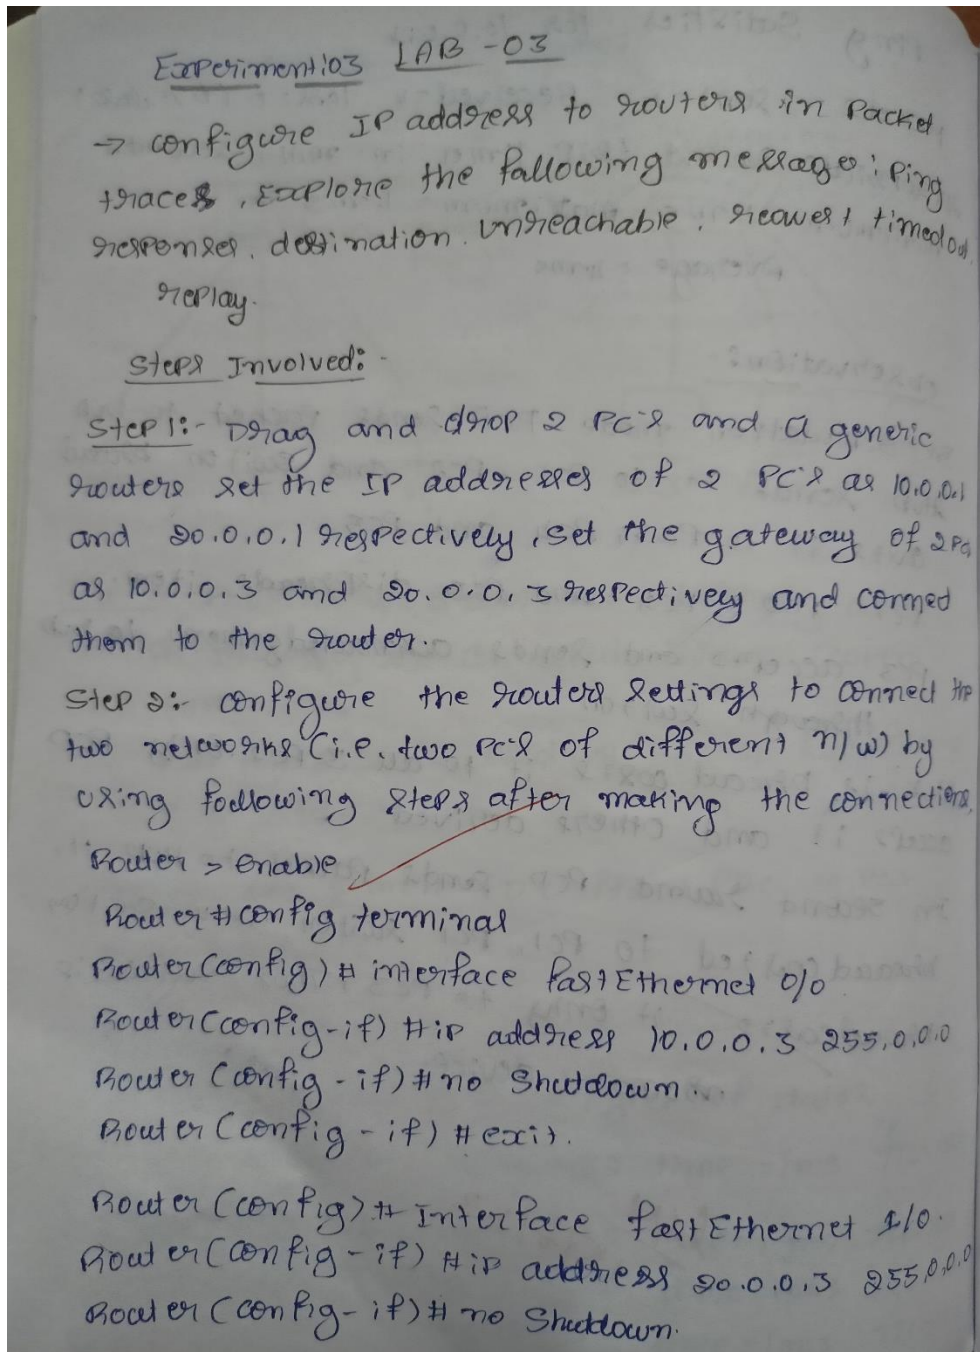 Experiment:03 LAB-03
→ configure IP address to routers in Packet
tracer, Explore the fallowing message: Ping
responses, destination unreachable, request timedout
replay.
Steps Involved:-
Step 1:- Drag and drop 2 PC's and a generic
routers set the IP addresses of 2 PC's as 10.0.0.1
and 20.0.0.1 respectively, set the gateway of 2 PCs
as 10.0.0.3 and 20.0.0.3 respectively and conned
them to the router.
Step 2:- configure the routers settings to conned the
two networks (i.e. two PC's of different n/w) by
using following steps after making the connections
Router > enable
Router # config terminal
Router (config) # interface fastEthernet 0/0
Router (config-if) # ip address 10.0.0.3 255.0.0.0
Router (config-if) # no Shutdown...
Router (config-if) # exit.
Router (config) # Interface fastEthernet 1/0.
Router (config-if) # ip address 20.0.0.3 255.0.0.0
Router (config-if) # no Shutdown.